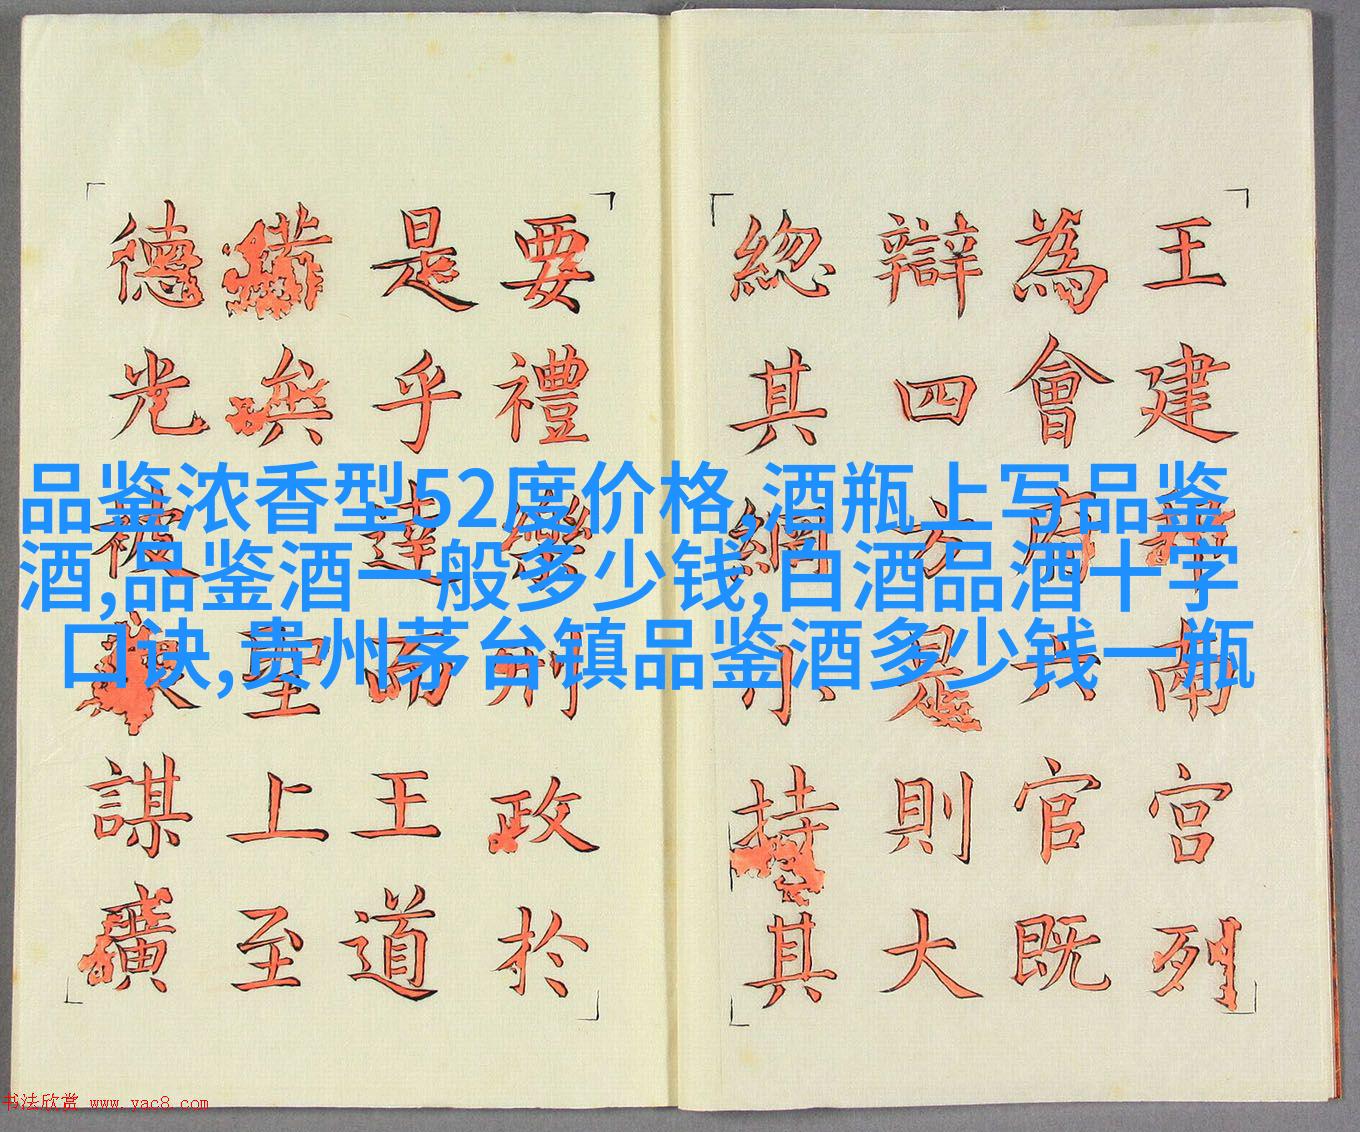 品鉴浓香型52度价格,酒瓶上写品鉴
酒,品鉴酒一般多少钱,白酒品酒十字
口诀,贵州茅台镇品鉴酒多少钱一瓶
王建邦南宮列
為會府六官既
辯四方是則大
總其綱小持其
要禮樂刑政於
是乎達而王道
備矣聖上至
德光被謀廣
书法欣赏 www.yac8.com